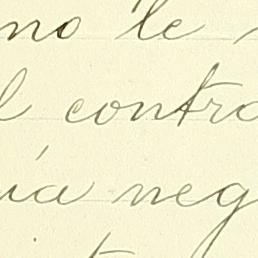 no le
l contra
ía neg